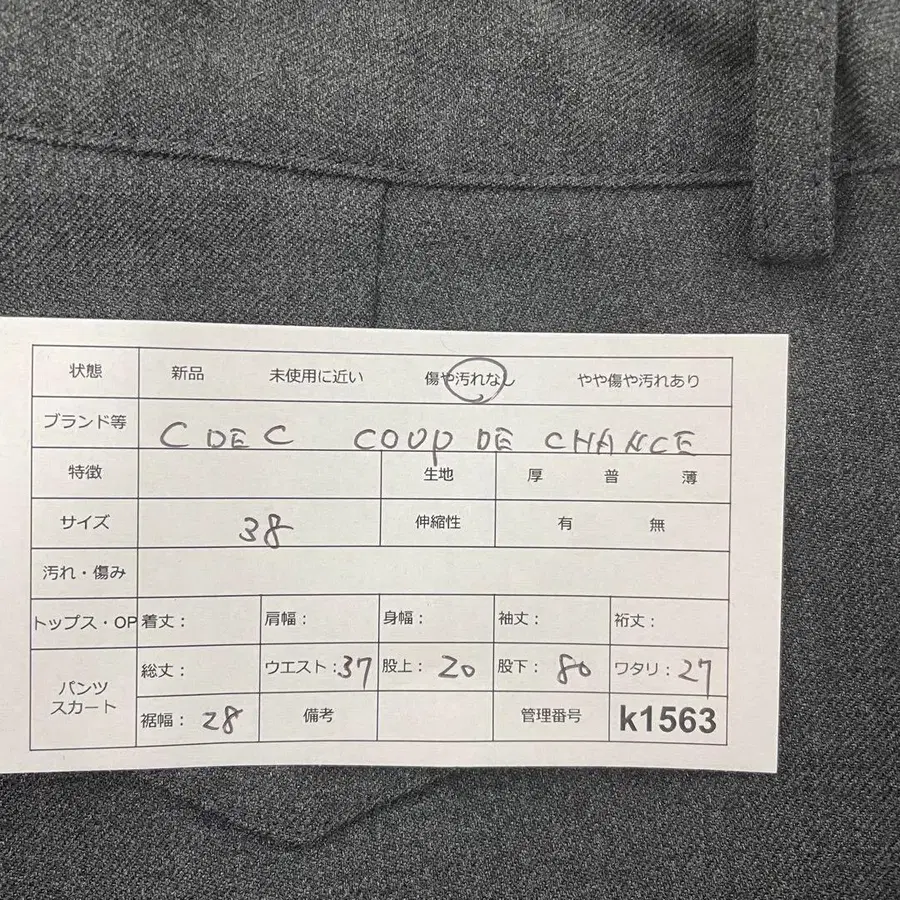 状態 新品 未使用に近い 傷や汚れなし やや傷や汚れあり
ブランド等 C DE C COUP DE CHANCE
特徴 生地 厚 普 薄
サイズ 38 伸縮性 有 無
汚れ・傷み
トップス・OP 着丈： 肩幅： 身幅： 袖丈： 裄丈：
パンツ スカート 総丈： ウエスト：37 股上：20 股下：80 ワタリ：27
裾幅：28 備考 管理番号 k1563